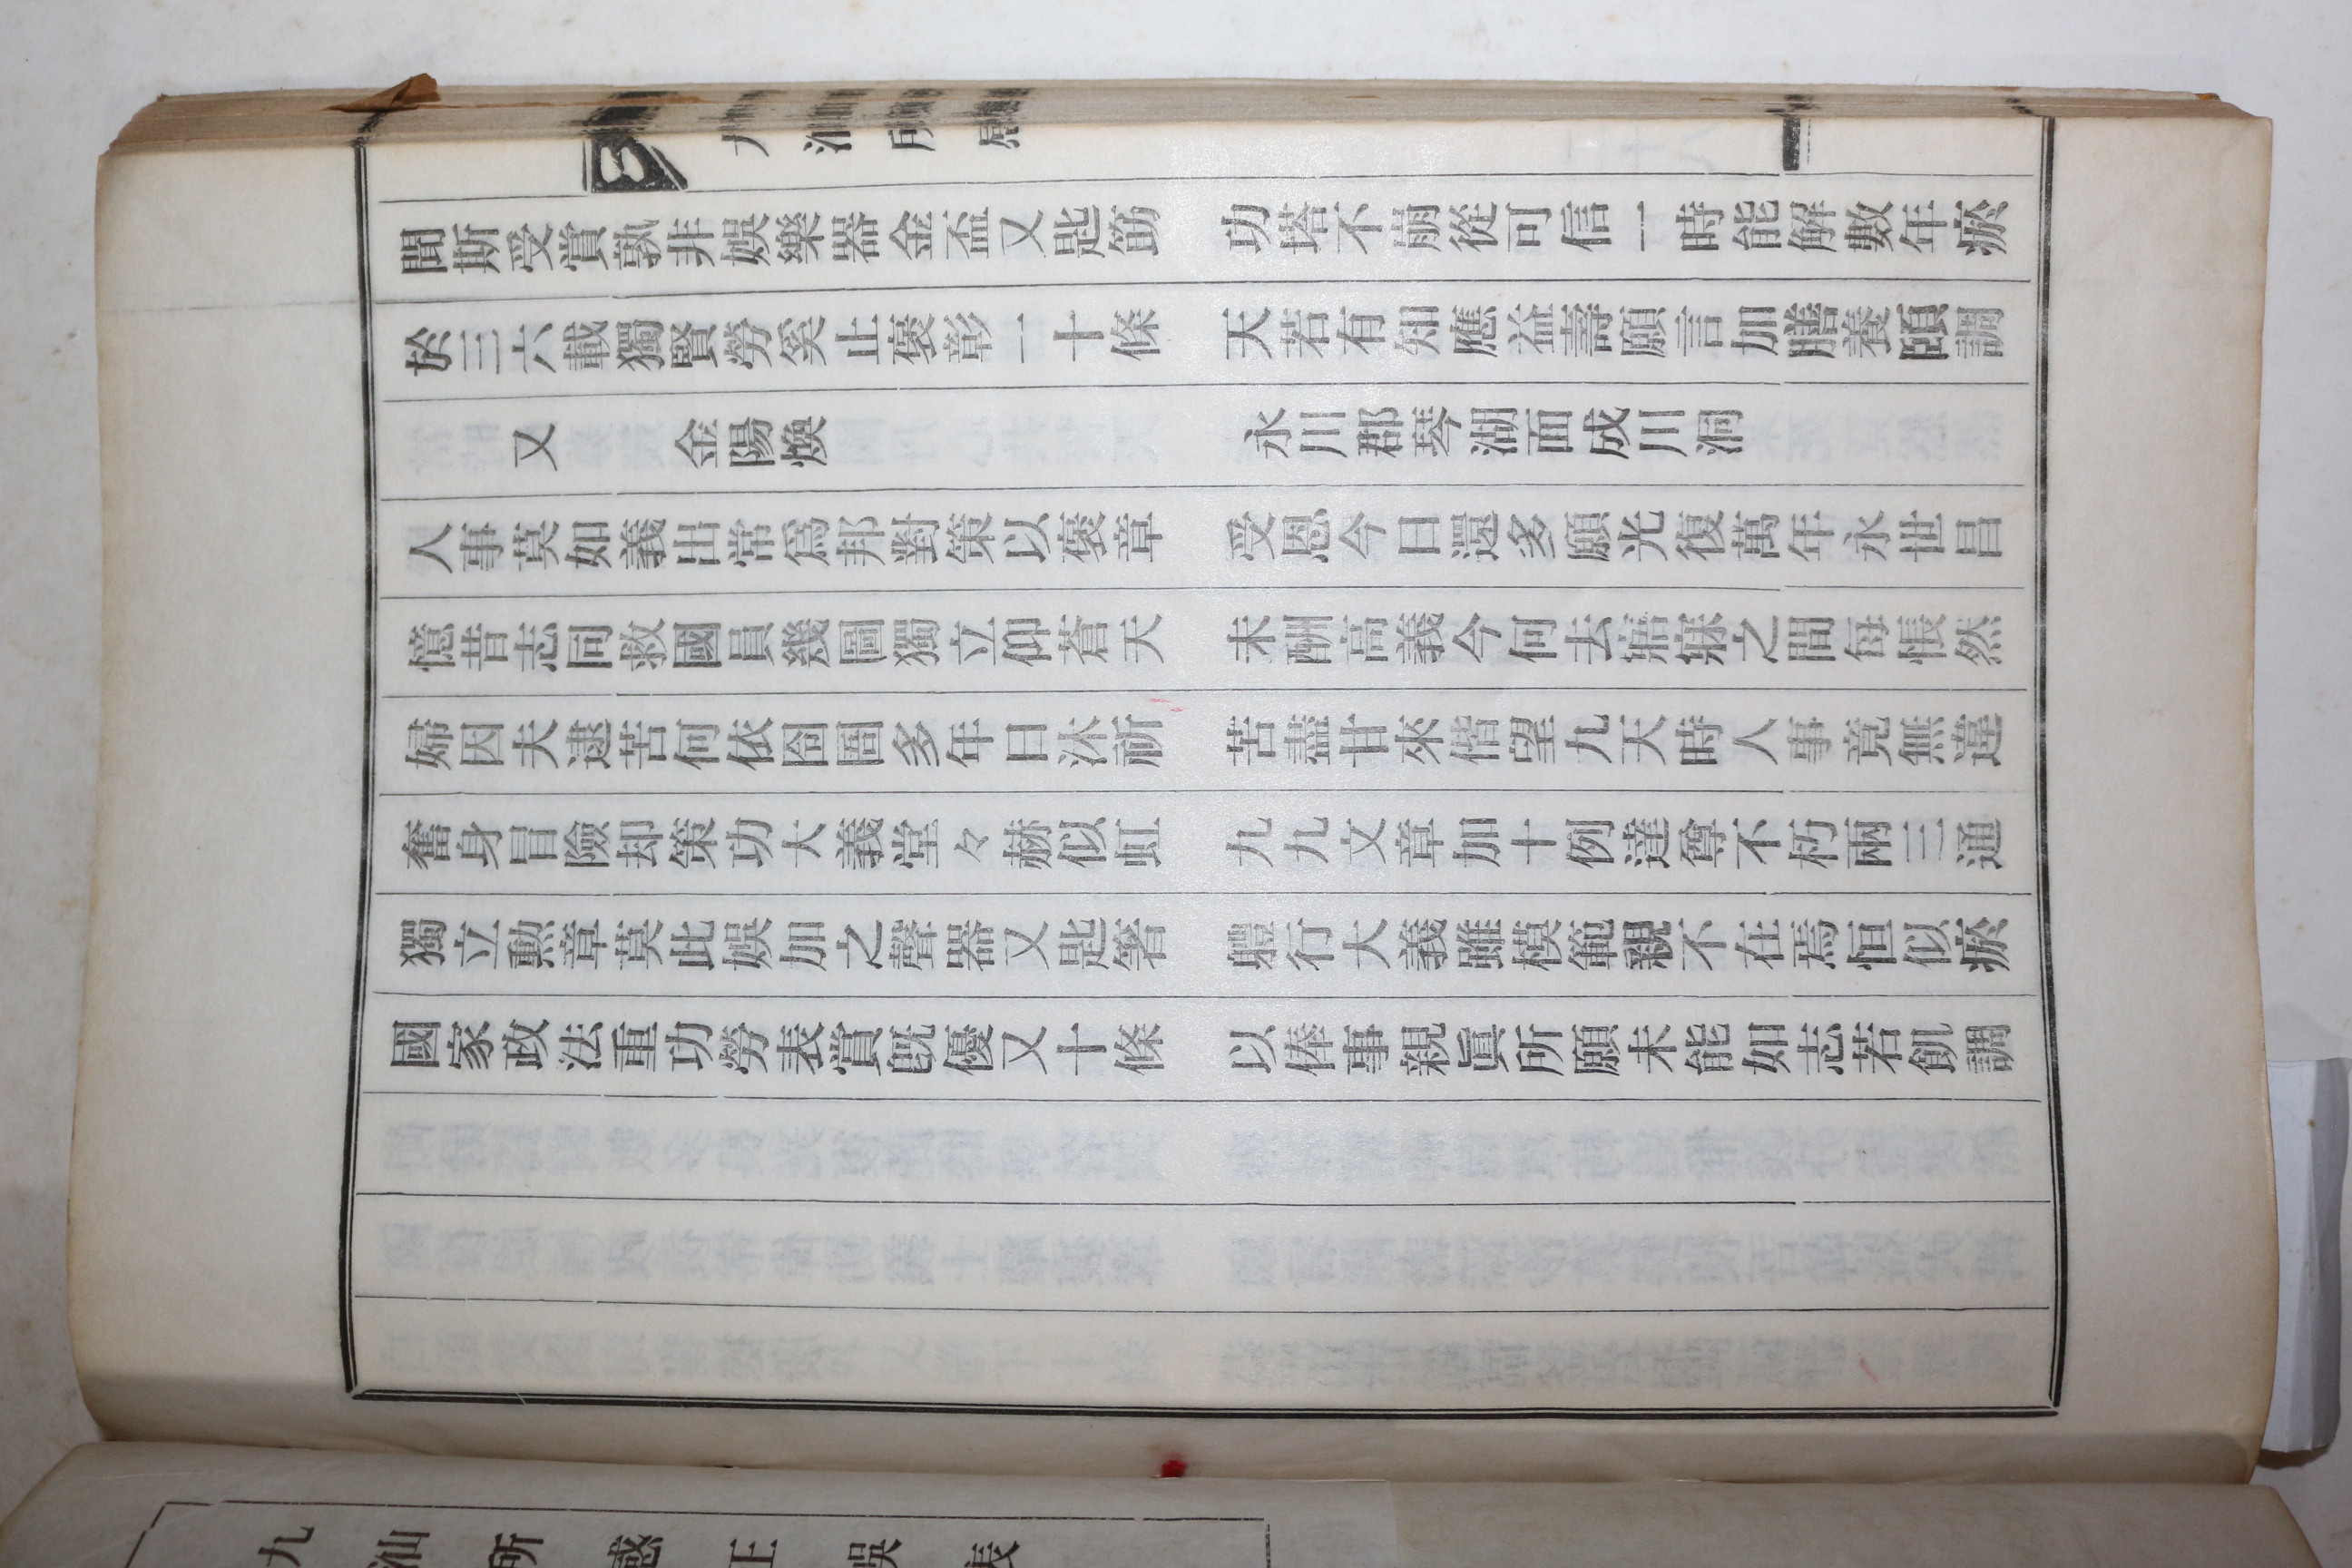 聞斯受賞孰非娛樂器金盃又匙筯　功塔不崩從可信一時能解數年瘀
於三六載獨賢勞奚止褒彰一十條　天若有知應益壽願言加膳養頤調
又　金陽煥　永川郡琴湖面成川洞
人事莫如義出常爲邦對策以褒章　受恩今日還多願光復萬年永世昌
憶昔志同救國員幾圖獨立仰蒼天　未酬高義今何去寤寐之間每悵然
婦因夫逮苦何依囹圄多年日沐祈　苦盡甘來偕望九天時人事竟無違
奮身冒險却策功大義堂々赫似虹　九九文章加十例達尊不朽兩三通
獨立勳章莫此娛加之聲器又匙箸　軆行大義雖模範親不在焉恒似瘀
國家政法重功勞表賞旣優又十條　以俸事親眞所願未能如志若飢調
九汕所感正誤表